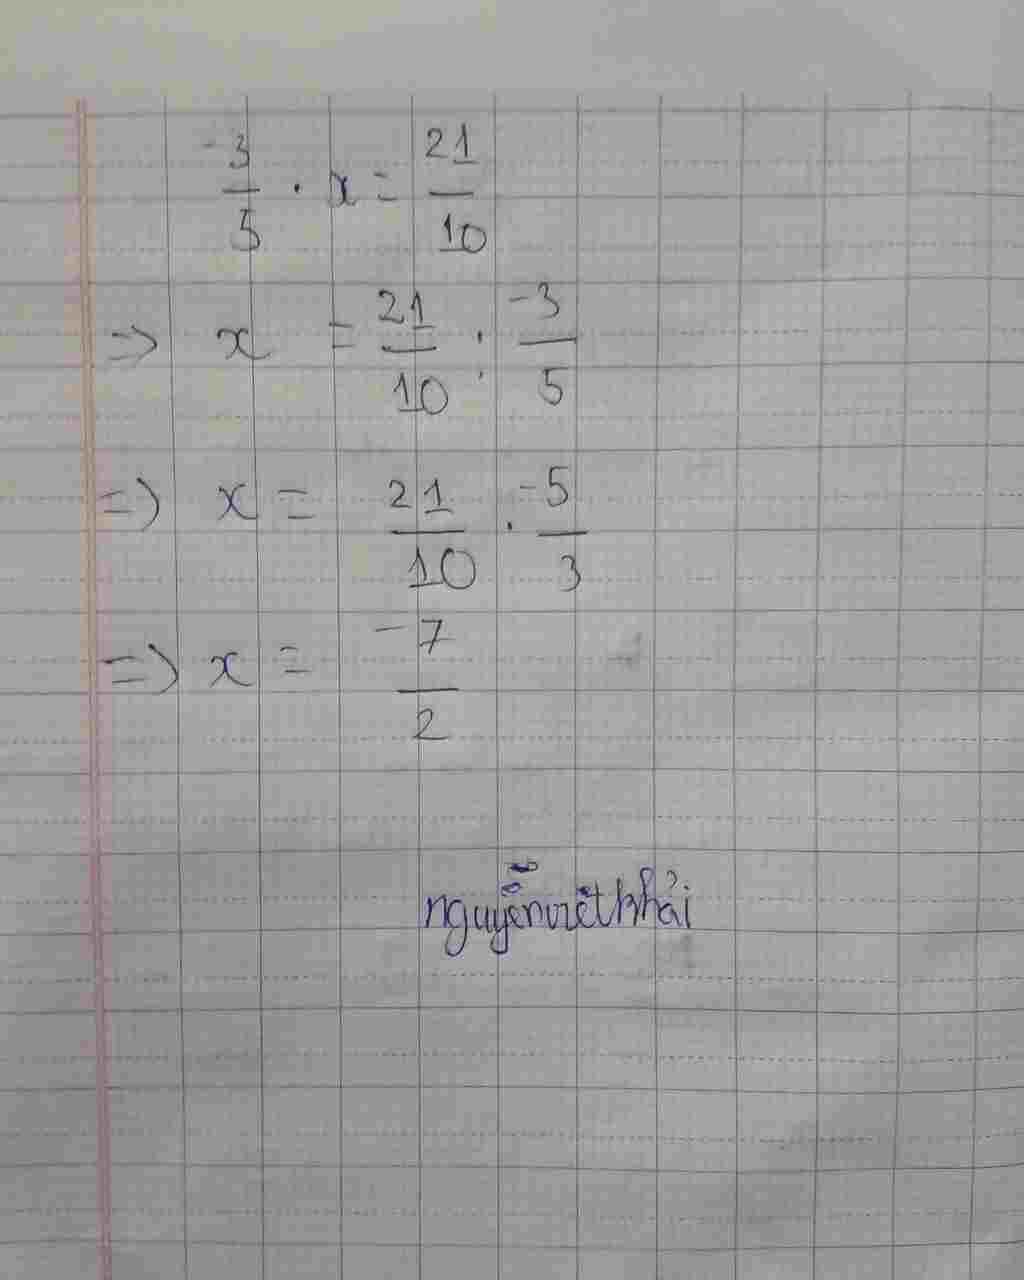 -3/5 · x = 21/10
=> x = 21/10 : -3/5
=> x = 21/10 · -5/3
=> x = -7/2
nguyễnviệtkhải